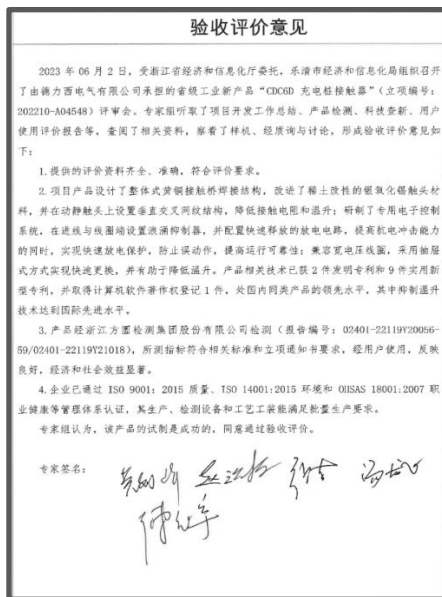 验收评价意见
2023 年 06 月 2 日，受浙江省经济和信息化厅委托，乐清市经济和信息化局组织召开
了由德力西电气有限公司承担的省级工业新产品“CDC6D 充电桩接触器”（立项编号：
202210-A04548）评审会。专家组听取了项目开发工作总结、产品检测、科技查新、用户
使用评价报告等，查阅了相关资料，察看了样机、经质询与讨论，形成验收评价意见如
下：
1.提供的评价资料齐全、准确，符合评价要求。
2.项目产品设计了整体式黄铜接触桥焊接结构，改进了稀土改性的银氧化锡触头材
料，并在动静触头上设置垂直交叉网纹结构，降低接触电阻和温升；研制了专用电子控制
系统，在进线与线圈端设置浪涌抑制器，并配置快速释放的放电电路，提高抗电冲击能力
的同时，实现快速放电保护，防止误动作，提高运行可靠性；兼容宽电压线圈，采用抽屉
式方式实现快速更换，并有助于降低温升。产品相关技术已获 2 件发明专利和 9 件实用新
型专利，并取得计算机软件著作权登记 1 件，处国内同类产品的领先水平，其中抑制温升
技术达到国际先进水平。
3.产品经浙江方圆检测集团股份有限公司检测（报告编号：02401-22119Y20056-
59/02401-22119Y21018），所测指标符合相关标准和立项通知书要求，经用户使用，反映
良好，经济和社会效益显著。
4.企业已通过 ISO 9001：2015 质量、ISO 14001:2015 环境和 OHSAS 18001:2007 职
业健康等管理体系认证，其生产、检测设备和工艺工装能满足批量生产要求。
专家组认为，该产品的试制是成功的，同意通过验收评价。
专家签名：